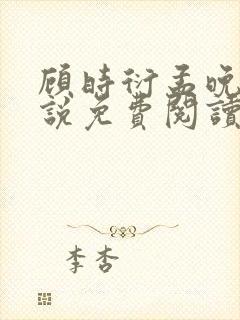 顾时衍孟晚
說免費閱讀
李杏